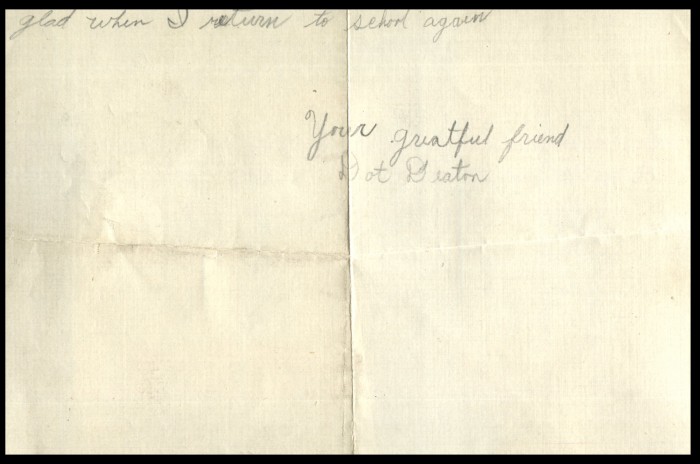 glad when I return to school again
Your greatful friend
Dot Beaton